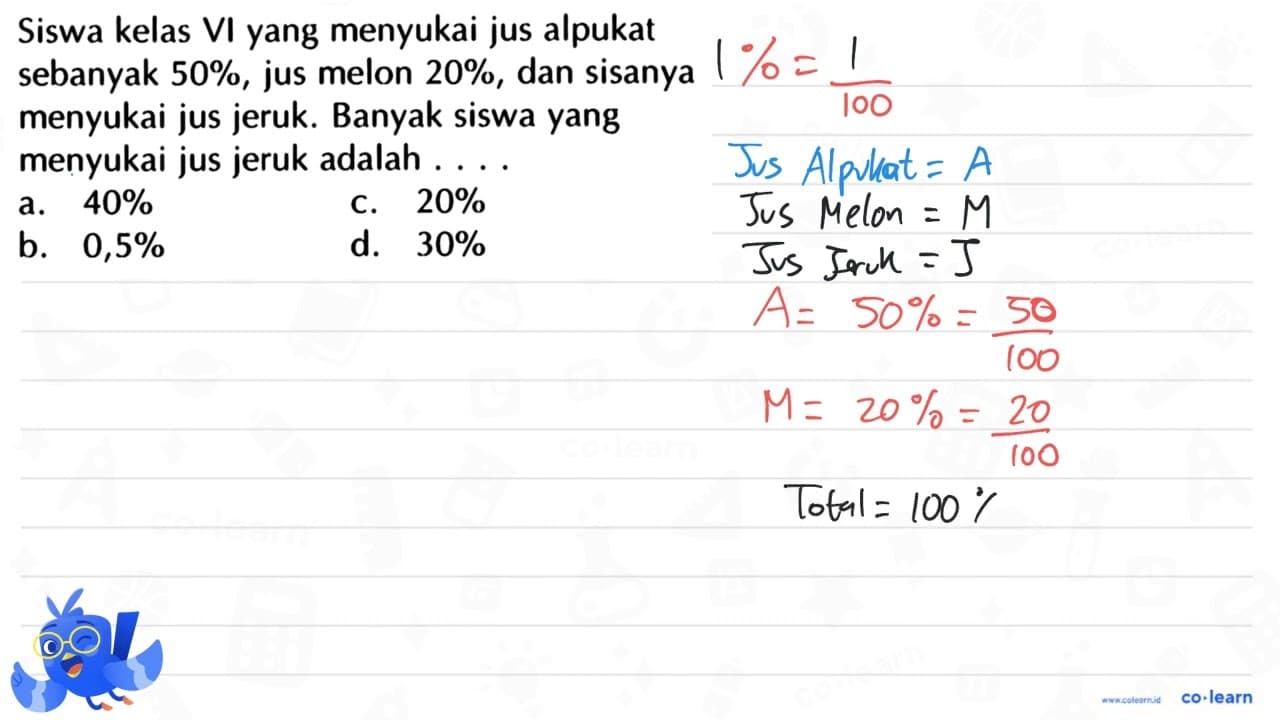 Siswa kelas VI yang menyukai jus alpukat
sebanyak 50%, jus melon 20%, dan sisanya
menyukai jus jeruk. Banyak siswa yang
menyukai jus jeruk adalah . . . .
a. 40% c. 20%
b. 0,5% d. 30%
1% = 1/100
Jus Alpukat = A
Jus Melon = M
Jus Jeruk = J
A = 50% = 50/100
M = 20% = 20/100
Total = 100%
co·learn
co·learn
co·learn
co·learn
www.colearn.id co·learn